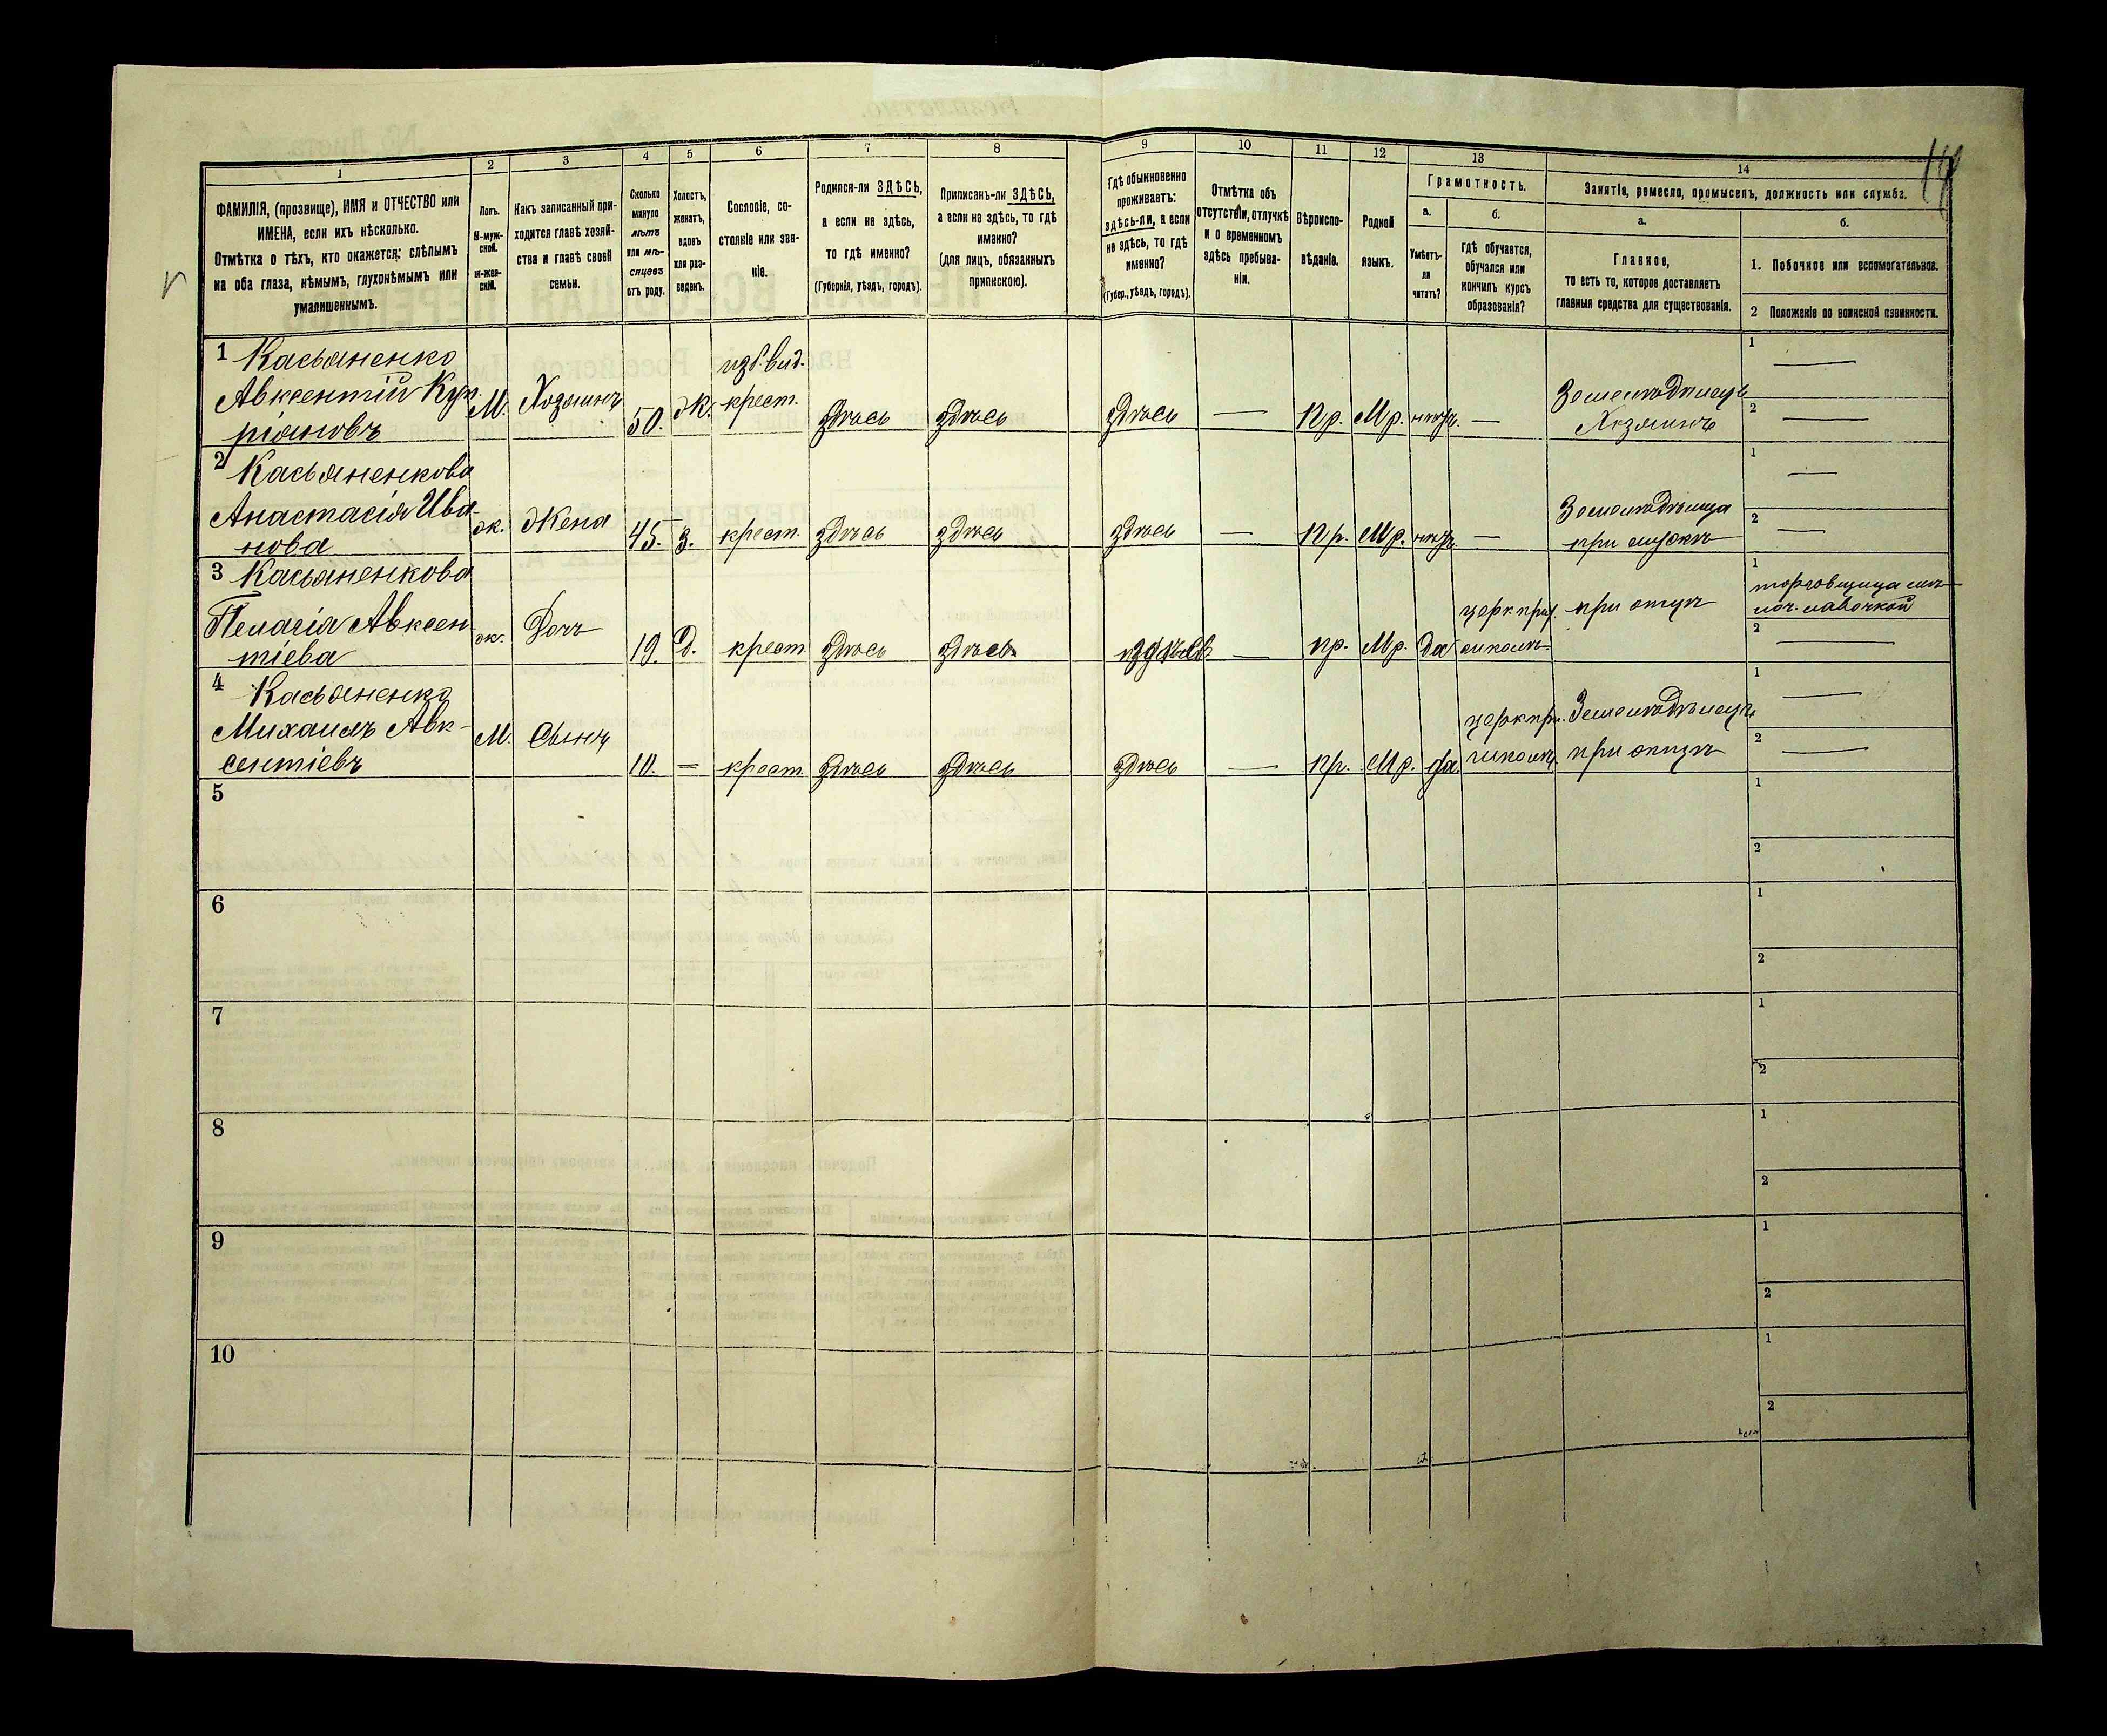 1
2
3
4
5
6
7
8
9
10
11
12
13
14
ФАМИЛІЯ, (прозвище), ИМЯ и ОТЧЕСТВО или
ИМЕНА, если ихъ нѣсколько.
Отмѣтка о тѣхъ, кто окажется: слѣпымъ
на оба глаза, нѣмымъ, глухонѣмымъ или
умалишеннымъ.
Полъ.
М-муж-
ской.
ж-жен-
скій.
Какъ записанный при-
ходится главѣ хозяй-
ства и главѣ своей
семьи.
Сколько
минуло
лѣтъ
или мѣ-
сяцевъ
отъ роду.
Холостъ,
женатъ,
вдовъ
или раз-
веденъ.
Сословіе, со-
стояніе или зва-
ніе.
Родился-ли ЗДѢСЬ,
а если не здѣсь,
то гдѣ именно?
(Губернія, уѣздъ, городъ).
Приписанъ-ли ЗДѢСЬ,
а если не здѣсь, то гдѣ
именно?
(для лицъ, обязанныхъ
припискою).
Гдѣ обыкновенно
проживаетъ:
здѣсь-ли, а если
не здѣсь, то гдѣ
именно?
(Губер., уѣздъ, городъ).
Отмѣтка объ
отсутствіи, отлучкѣ
и о временномъ
здѣсь пребыва-
ніи.
Вѣроиспо-
вѣданіе.
Родной
языкъ.
Грамотность.
а.
Умѣетъ-
ли
читать?
б.
гдѣ обучается,
обучался или
кончилъ курсъ
образованія?
Занятіе, ремесло, промыселъ, должность или служба.
а.
Главное,
то есть то, которое доставляетъ
главныя средства для существованія.
б.
1. Побочное или вспомогательное.
2 Положеніе по воинской повинности.
1 Касьяненко
Авксентій Куп-
ріяновъ
М. Хозяинъ 50. Ж. крест. здѣсь здѣсь здѣсь — Пр. Мр. нѣтъ. —
Земледѣлецъ
Хозяинъ
1 —
2 —
2 Касьяненкова
Анастасія Ива-
нова
ж. Жена 45. З. крест. здѣсь здѣсь здѣсь — Пр. Мр. нѣтъ. —
Земледѣлица
при мужѣ
1 —
2 —
3 Касьяненкова
Пелагія Авксен-
тіева
ж. Дочь 19. Д. крест здѣсь здѣсь здѣсь — пр. Мр. Да
церк прих.
школѣ
при отцѣ
1
торговщица мѣ-
лоч. лавочкой
2 —
4 Касьяненко
Михаилъ Авк-
сентіевъ
М. Сынъ 10. — крест здѣсь здѣсь здѣсь — пр. Мр. да.
церк при.
школѣ
Земледѣлецъ
при отцѣ
1 —
2 —
5
1
2
6
1
2
7
1
2
8
1
2
9
1
2
10
1
2